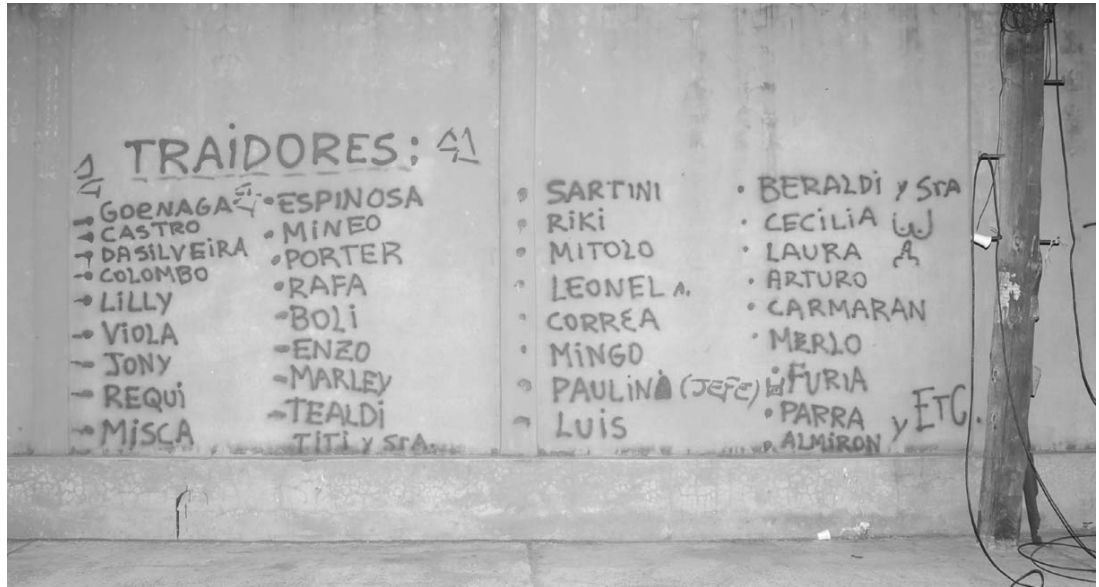 TRAiDORES:
GOENAGA
CASTRO
DASILVEIRA
COLOMBO
LiLLY
ViOLA
JONY
REQUi
MiSCA
ESPINOSA
MINEO
PORTER
RAFA
BOLi
ENZO
MARLEY
TEALDi
TiTi y STA.
SARTINI
RiKi
MITOLO
LEONEL A.
CORREA
MiNGO
PAULINA (JEFE)
LUiS
BERALDi y STA
CECILIA
LAURA
ARTURO
CARMARAN
MERLO
FURIA
PARRA
ALMIRON
y ETC.